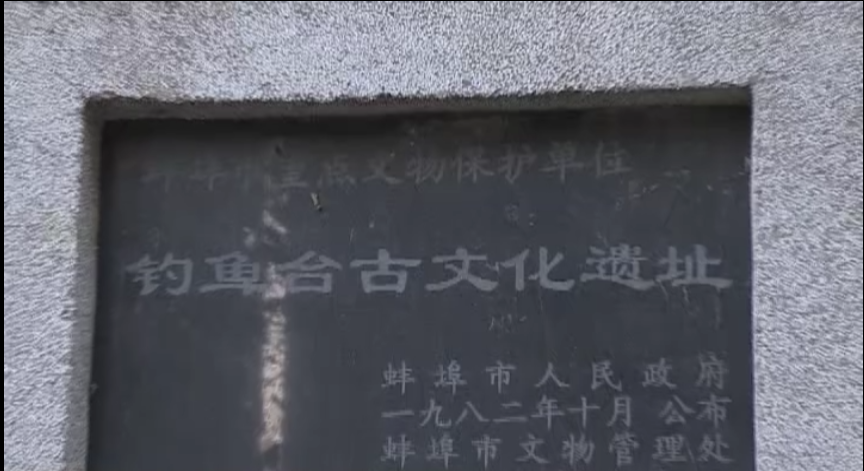 蚌埠市重点文物保护单位
钓鱼台古文化遗址
蚌埠市人民政府
一九八二年十月 公布
蚌埠市文物管理处